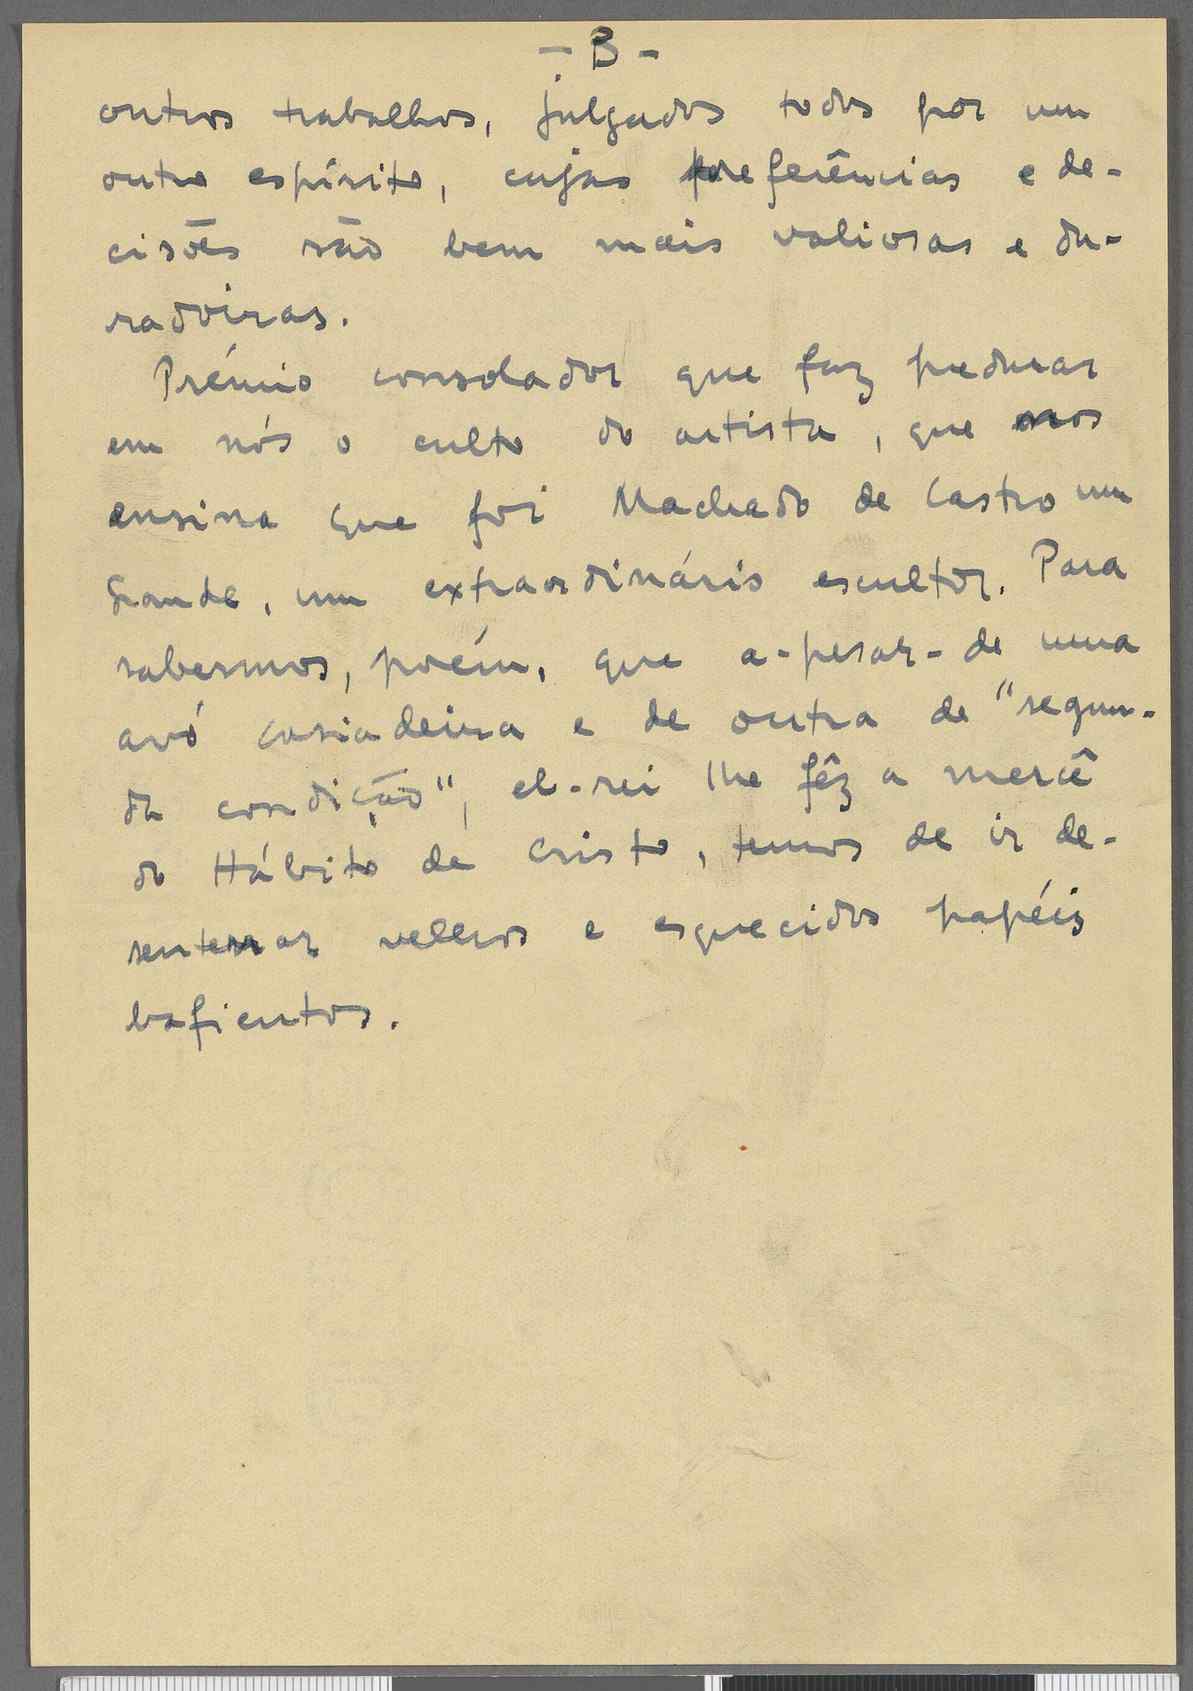 - B -
outros trabalhos, julgados todos por um
outro espírito, cujas preferências e de-
cisões são bem mais valiosas e du-
radoiras.
Prémio consolador que faz perdurar
em nós o culto do artista, que nos
ensina que foi Machado de Castro um
Grande, um extraordinário escultor. Para
sabermos, porém, que a-pesar-de uma
avó creadeira e de outra de "segun-
da condição", el-rei lhe fêz a mercê
do Hábito de Cristo, temos de ir de-
senterrar velhos e esquecidos papéis
bafientos.